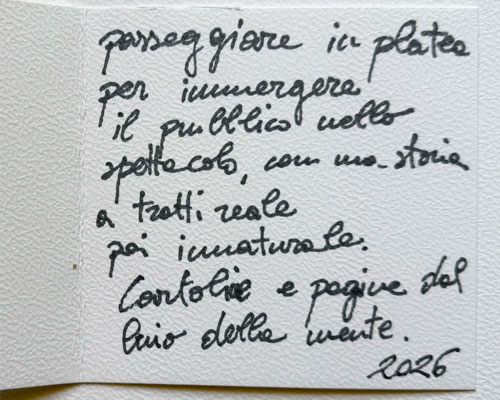 passeggiare in platea
per immergere
il pubblico nello
spettacolo, con una storia
a tratti reale
poi innaturale.
Cartoline e pagine dal
buio della mente.
2026